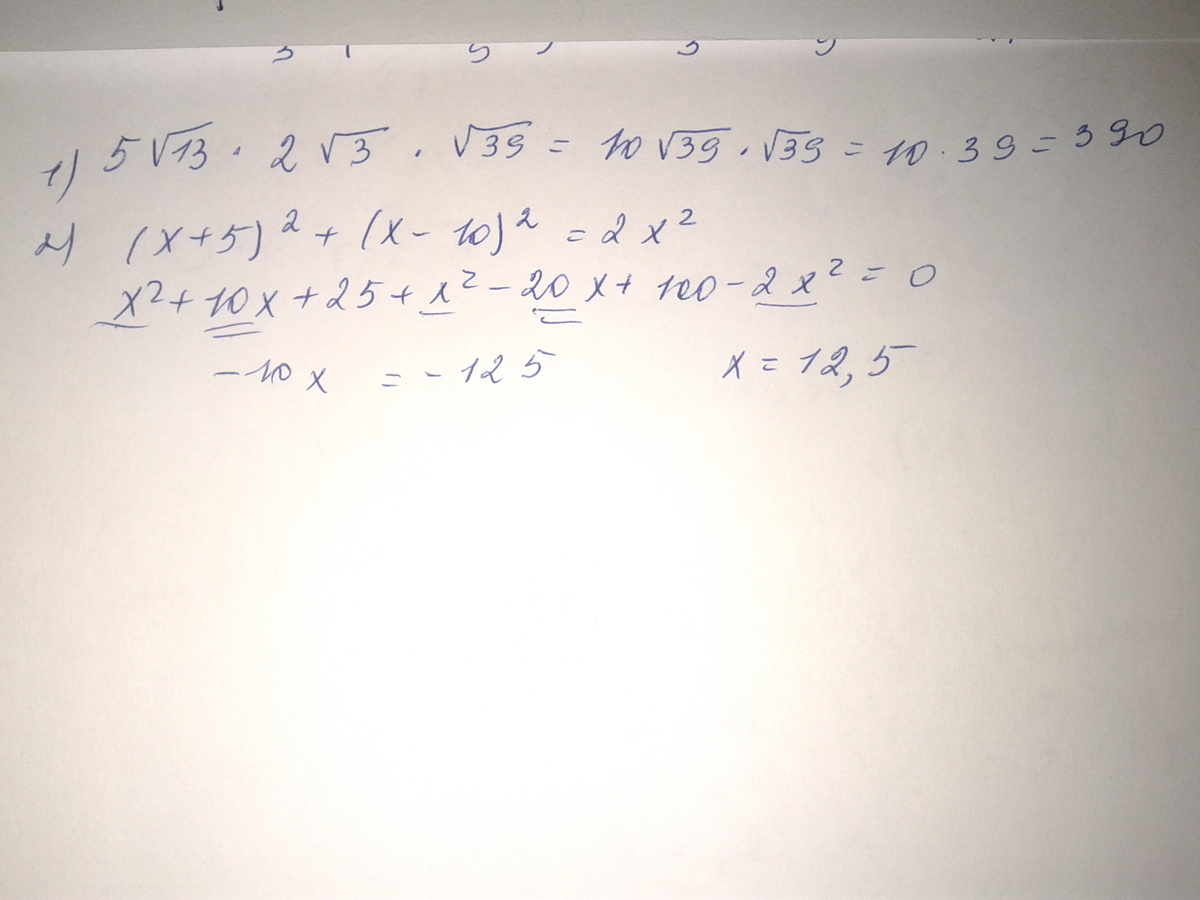 1) 5√13 · 2√3 · √39 = 10√39 · √39 = 10 · 39 = 390
2) (x+5)² + (x-10)² = 2x²
x² + 10x + 25 + x² - 20x + 100 - 2x² = 0
-10x = -125 x = 12,5